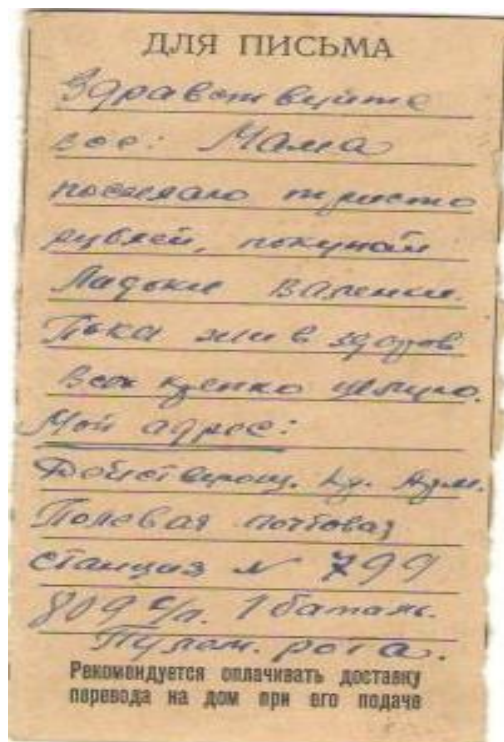 ДЛЯ ПИСЬМА
Здравствуйте
все: Мама
посылаю триста
рублей, покупай
Ладьке Валенки.
Пока жив здоров
Всех крепко целую.
Мой адрес:
Действующ. Кр. Арм.
Полевая почтовая
станция № 799
809 с/п. 1 баталь.
Пулем. рота.
Рекомендуется оплачивать доставку
перевода на дом при его подаче